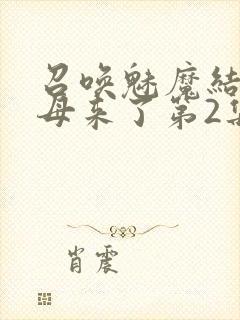 召唤魅魔结
母来了第2集
肖震